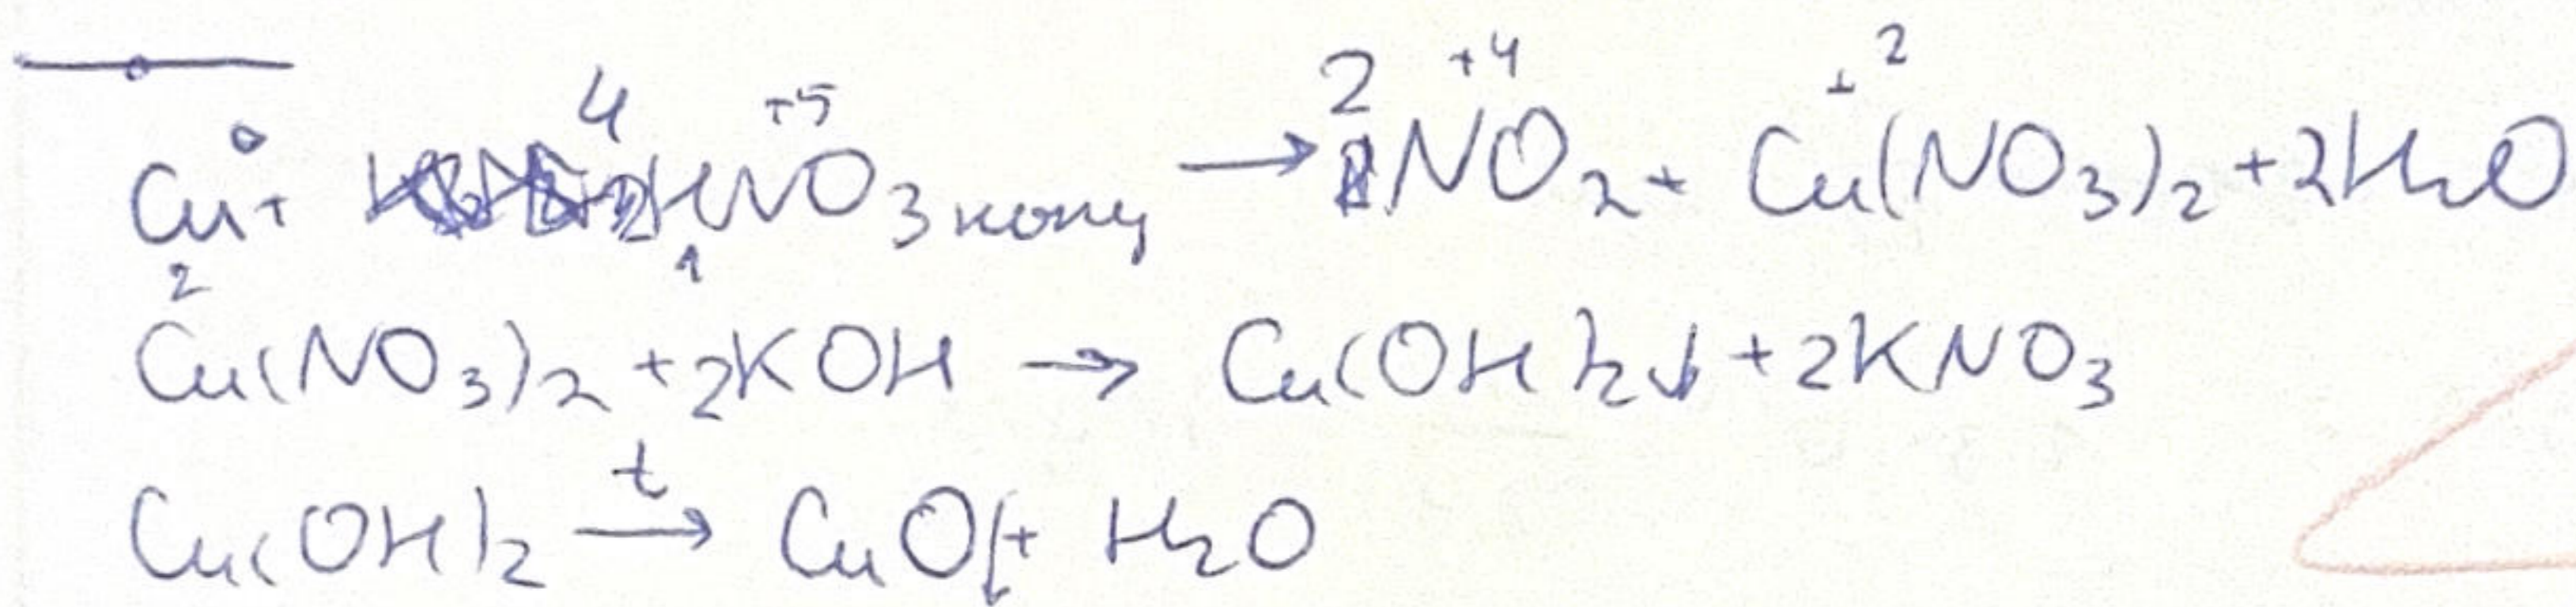 Cu⁰ + 4HN⁺⁵O₃ конц → 2N⁺⁴O₂ + Cu⁺²(NO₃)₂ + 2H₂O
2 1
Cu(NO₃)₂ + 2KOH → Cu(OH)₂↓ + 2KNO₃
Cu(OH)₂ →ᵗ CuO↓ + H₂O